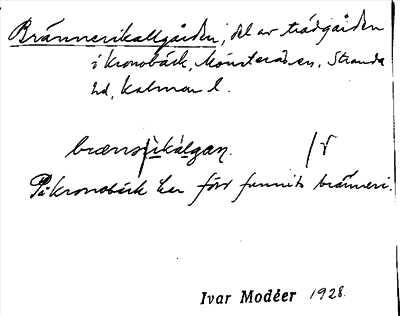 Brännerikallgården, del av trädgården
i Kronobäck, Mönsterås sn, Stranda
hd, Kalmar l.
På Kronobäck har förr funnits bränneri.
Ivar Modéer 1928.